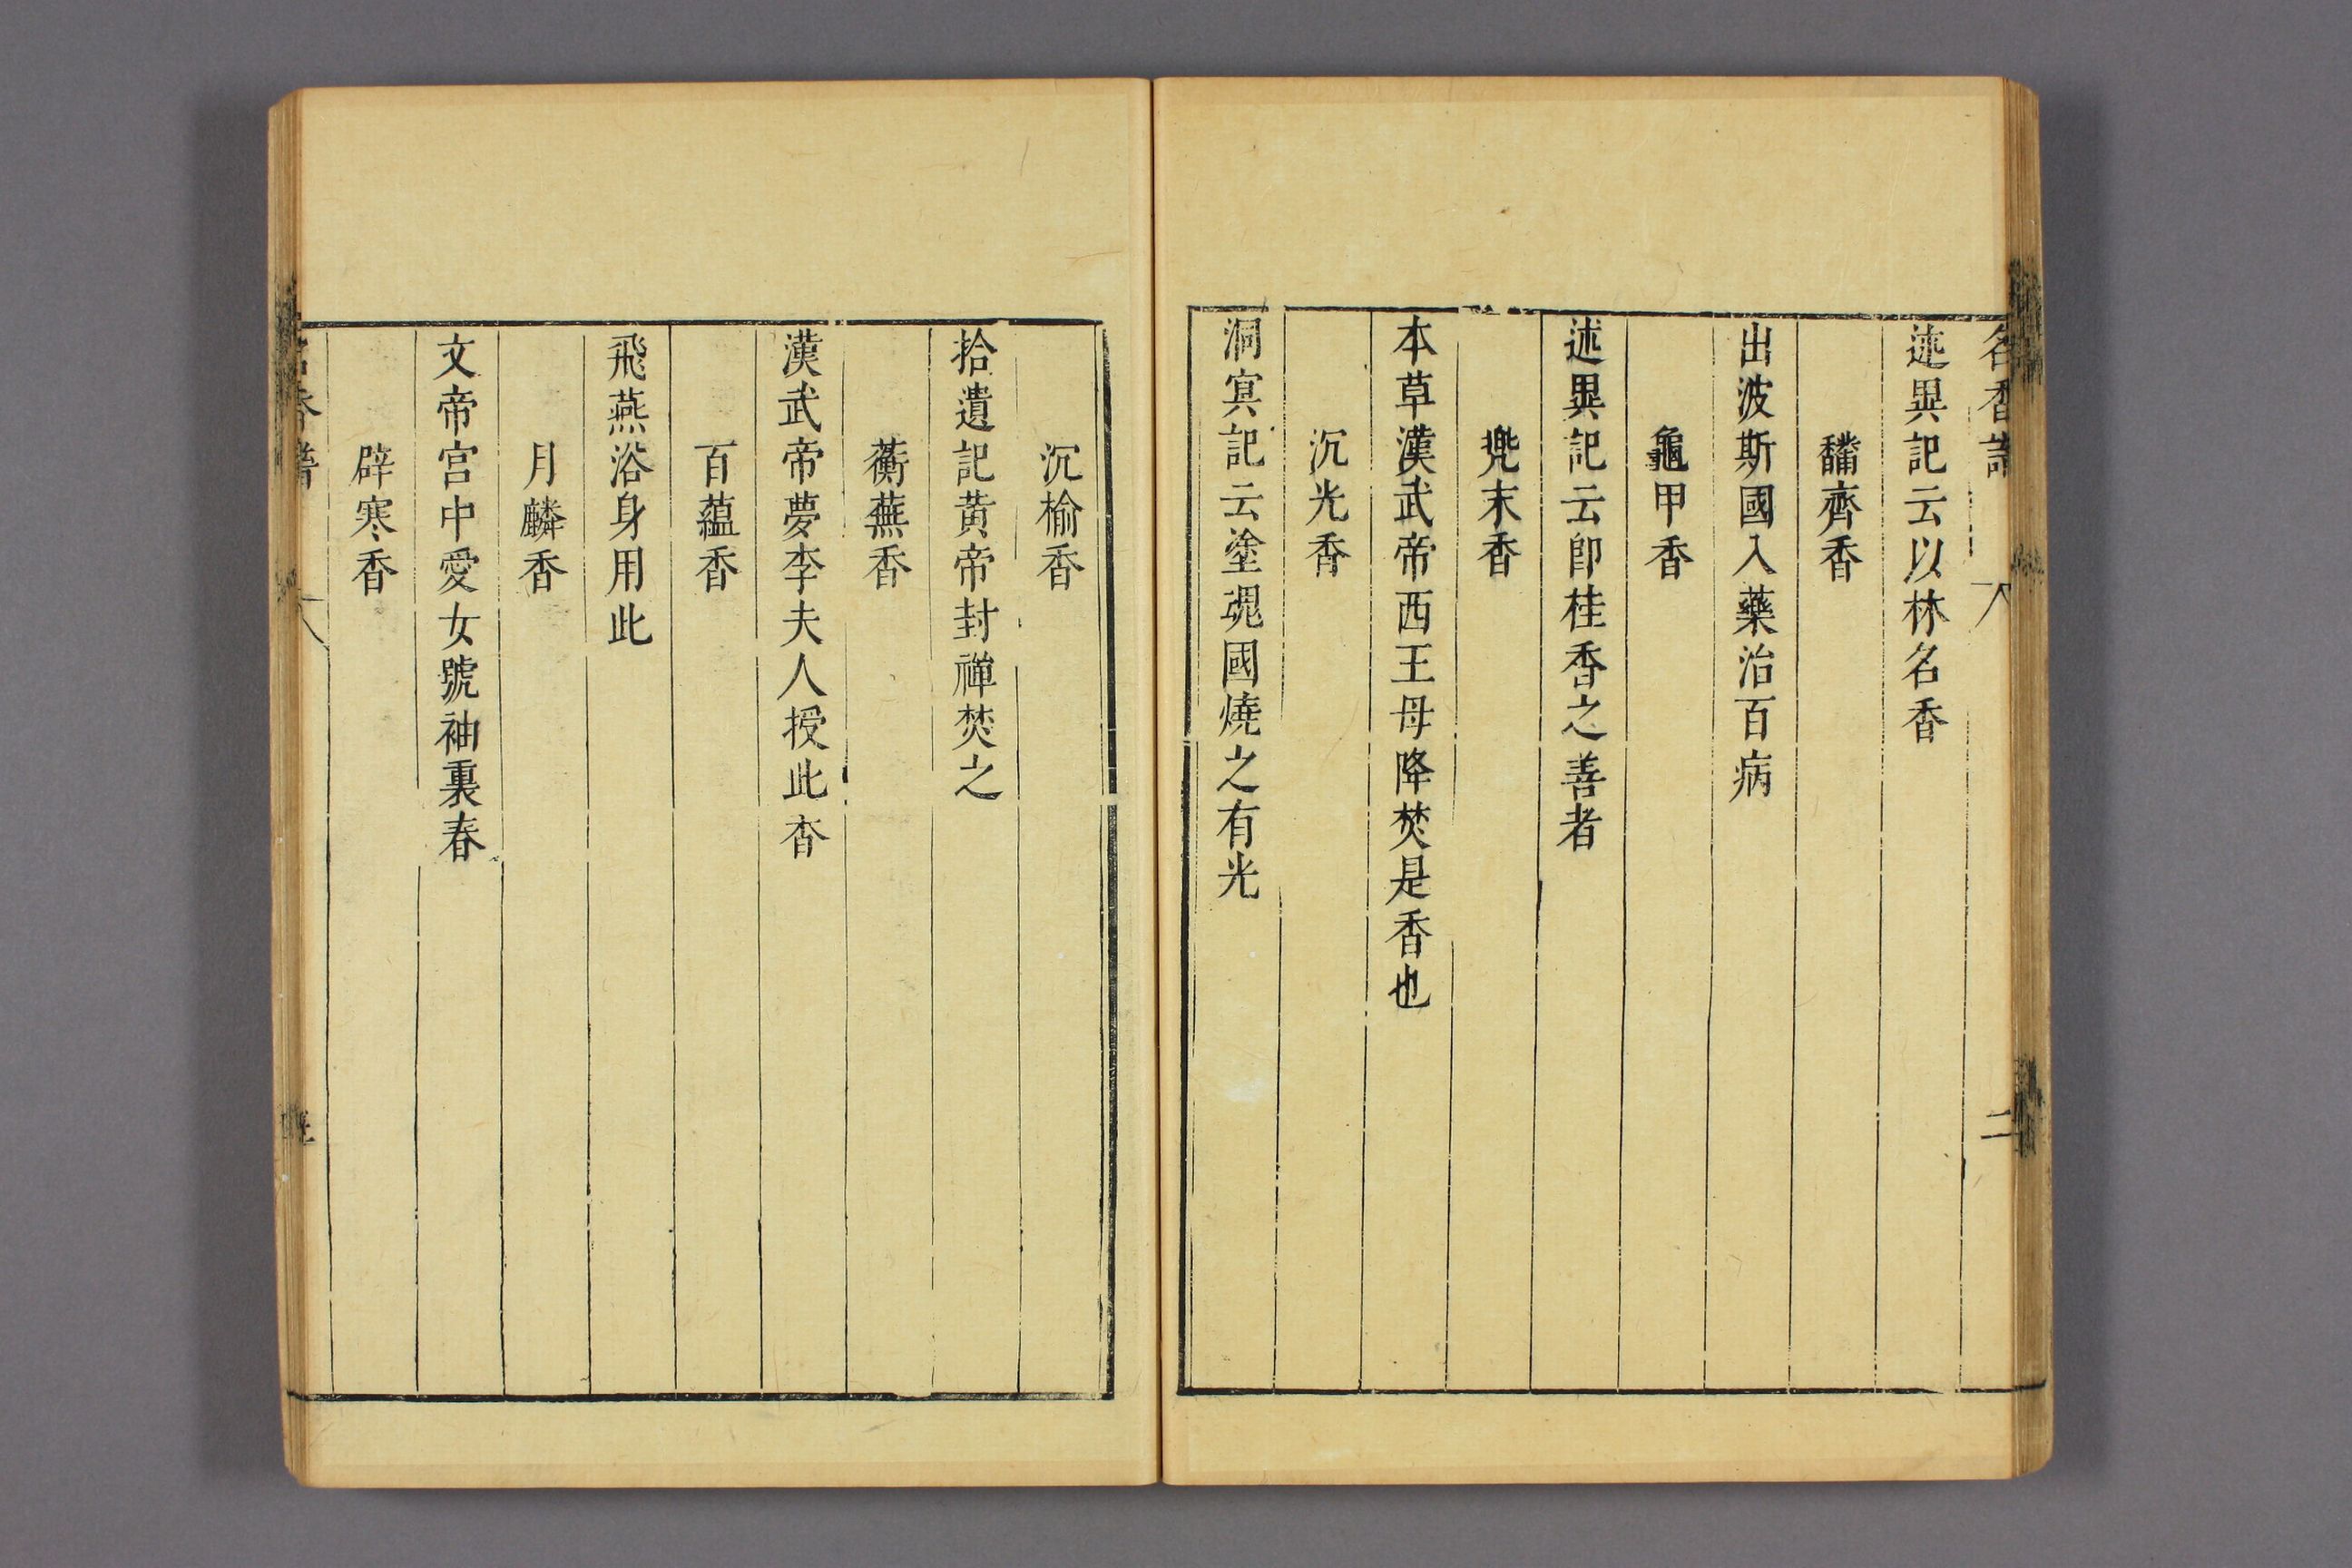 名香譜 二
述異記云以林名香
䭱齊香
出波斯國入藥治百病
龜甲香
述異記云卽桂香之善者
兠末香
本草漢武帝西王母降焚是香也
沉光香
洞冥記云塗魂國燒之有光
沉榆香
拾遺記黃帝封禪焚之
蘅蕪香
漢武帝夢李夫人授此香
百蘊香
飛燕浴身用此
月麟香
文帝宮中愛女號袖裏春
辟寒香